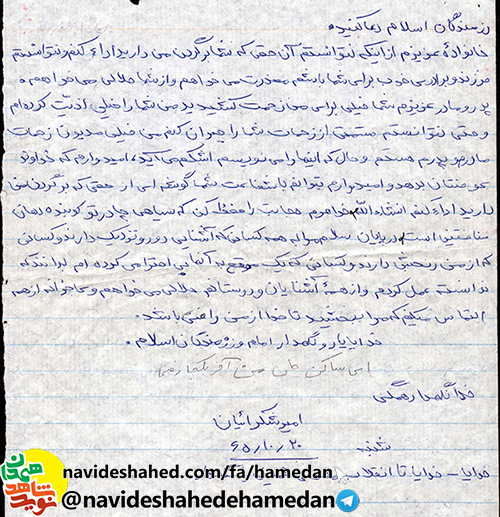 رزمندگان اسلام دعا کنید.
خانوادهٔ عزیزم از اینکه نتوانستم آن حقی که شما بر گردن من دارید اداء کنم و نتوانستم
فرزند و برادری خوب برای شما باشم معذرت می خواهم و از شما حلالی می خواهم
پدر و مادر عزیزم شما خیلی برای من زحمت کشیدید من شما را خیلی اذیت کرده ام
و حتی نتوانستم قسمتی از زحمات شما را جبران کنم من خیلی مدیون زحمات
مادرم و پدرم هستم و حال که اینها را می نویسم اشکم می آید، امیدوارم که خداوند
عوضتان بدهد و امیدوارم بتوانم با شفاعت شما گوشه ای از حقی که بر گردن من
دارید اداء کنم انشاء الله خواهرم حجابت را حفظ کن که سیاهی چادر تو کوبنده دهان
منافقین است در پایان سلام مرا به همه کسانی که آشنایی دور و نزدیک دارند و کسانی
که از من رنجش دارند و کسانی که یک موقع به آنها بی احترامی کرده ام بدانند که
ندانسته عمل کردم و از همهٔ آشنایان و دوستانم حلالی می خواهم و عاجزانه از همه
التماس میکنم که مرا ببخشید تا خدا از من راضی باشد.
خدایا یار و نگهدار امام و رزمندگان اسلام.
خدا نگهدار همگی
امیر شکرائیان
شنبه ۶۵/۱۰/۲۰
خدایا - خدایا تا انقلاب
navideshahed.com/fa/hamedan
@navideshahedehamedan
نوید شاهد همدان